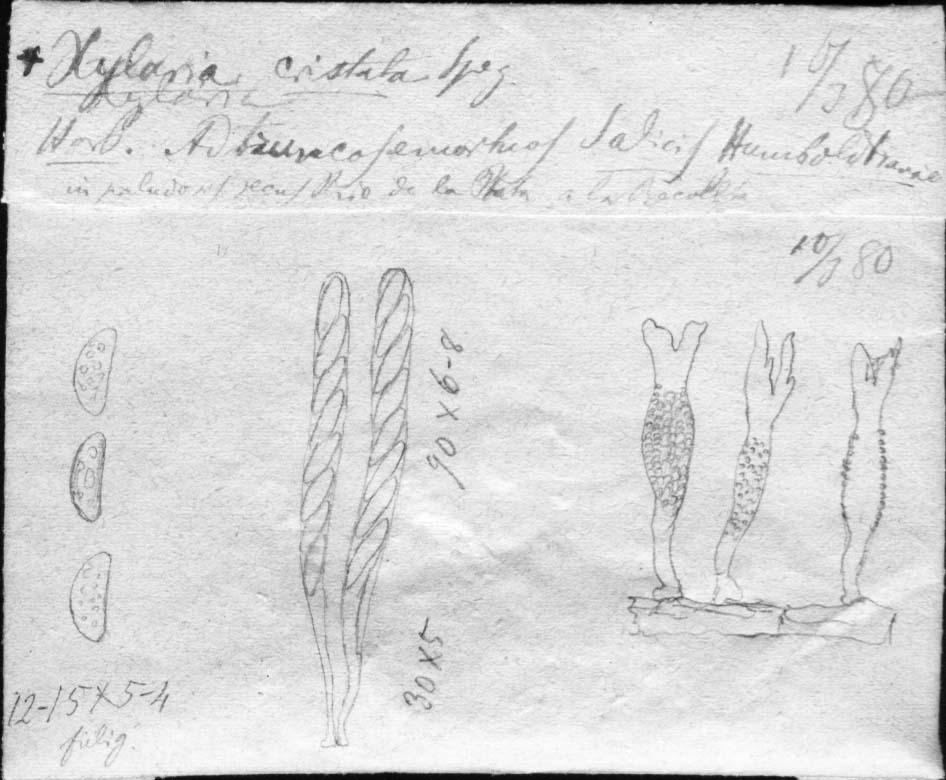 + Xylaria cristata Speg.
Xylaria
10/ 80
Hab. Ad truncos emortuos Salicis Humboldtianae
in paludosis secus Rio de la Plata a la Recoleta
10/ 80
90 X 6-8
30 X 5
12-15 X 5-4
fulig.